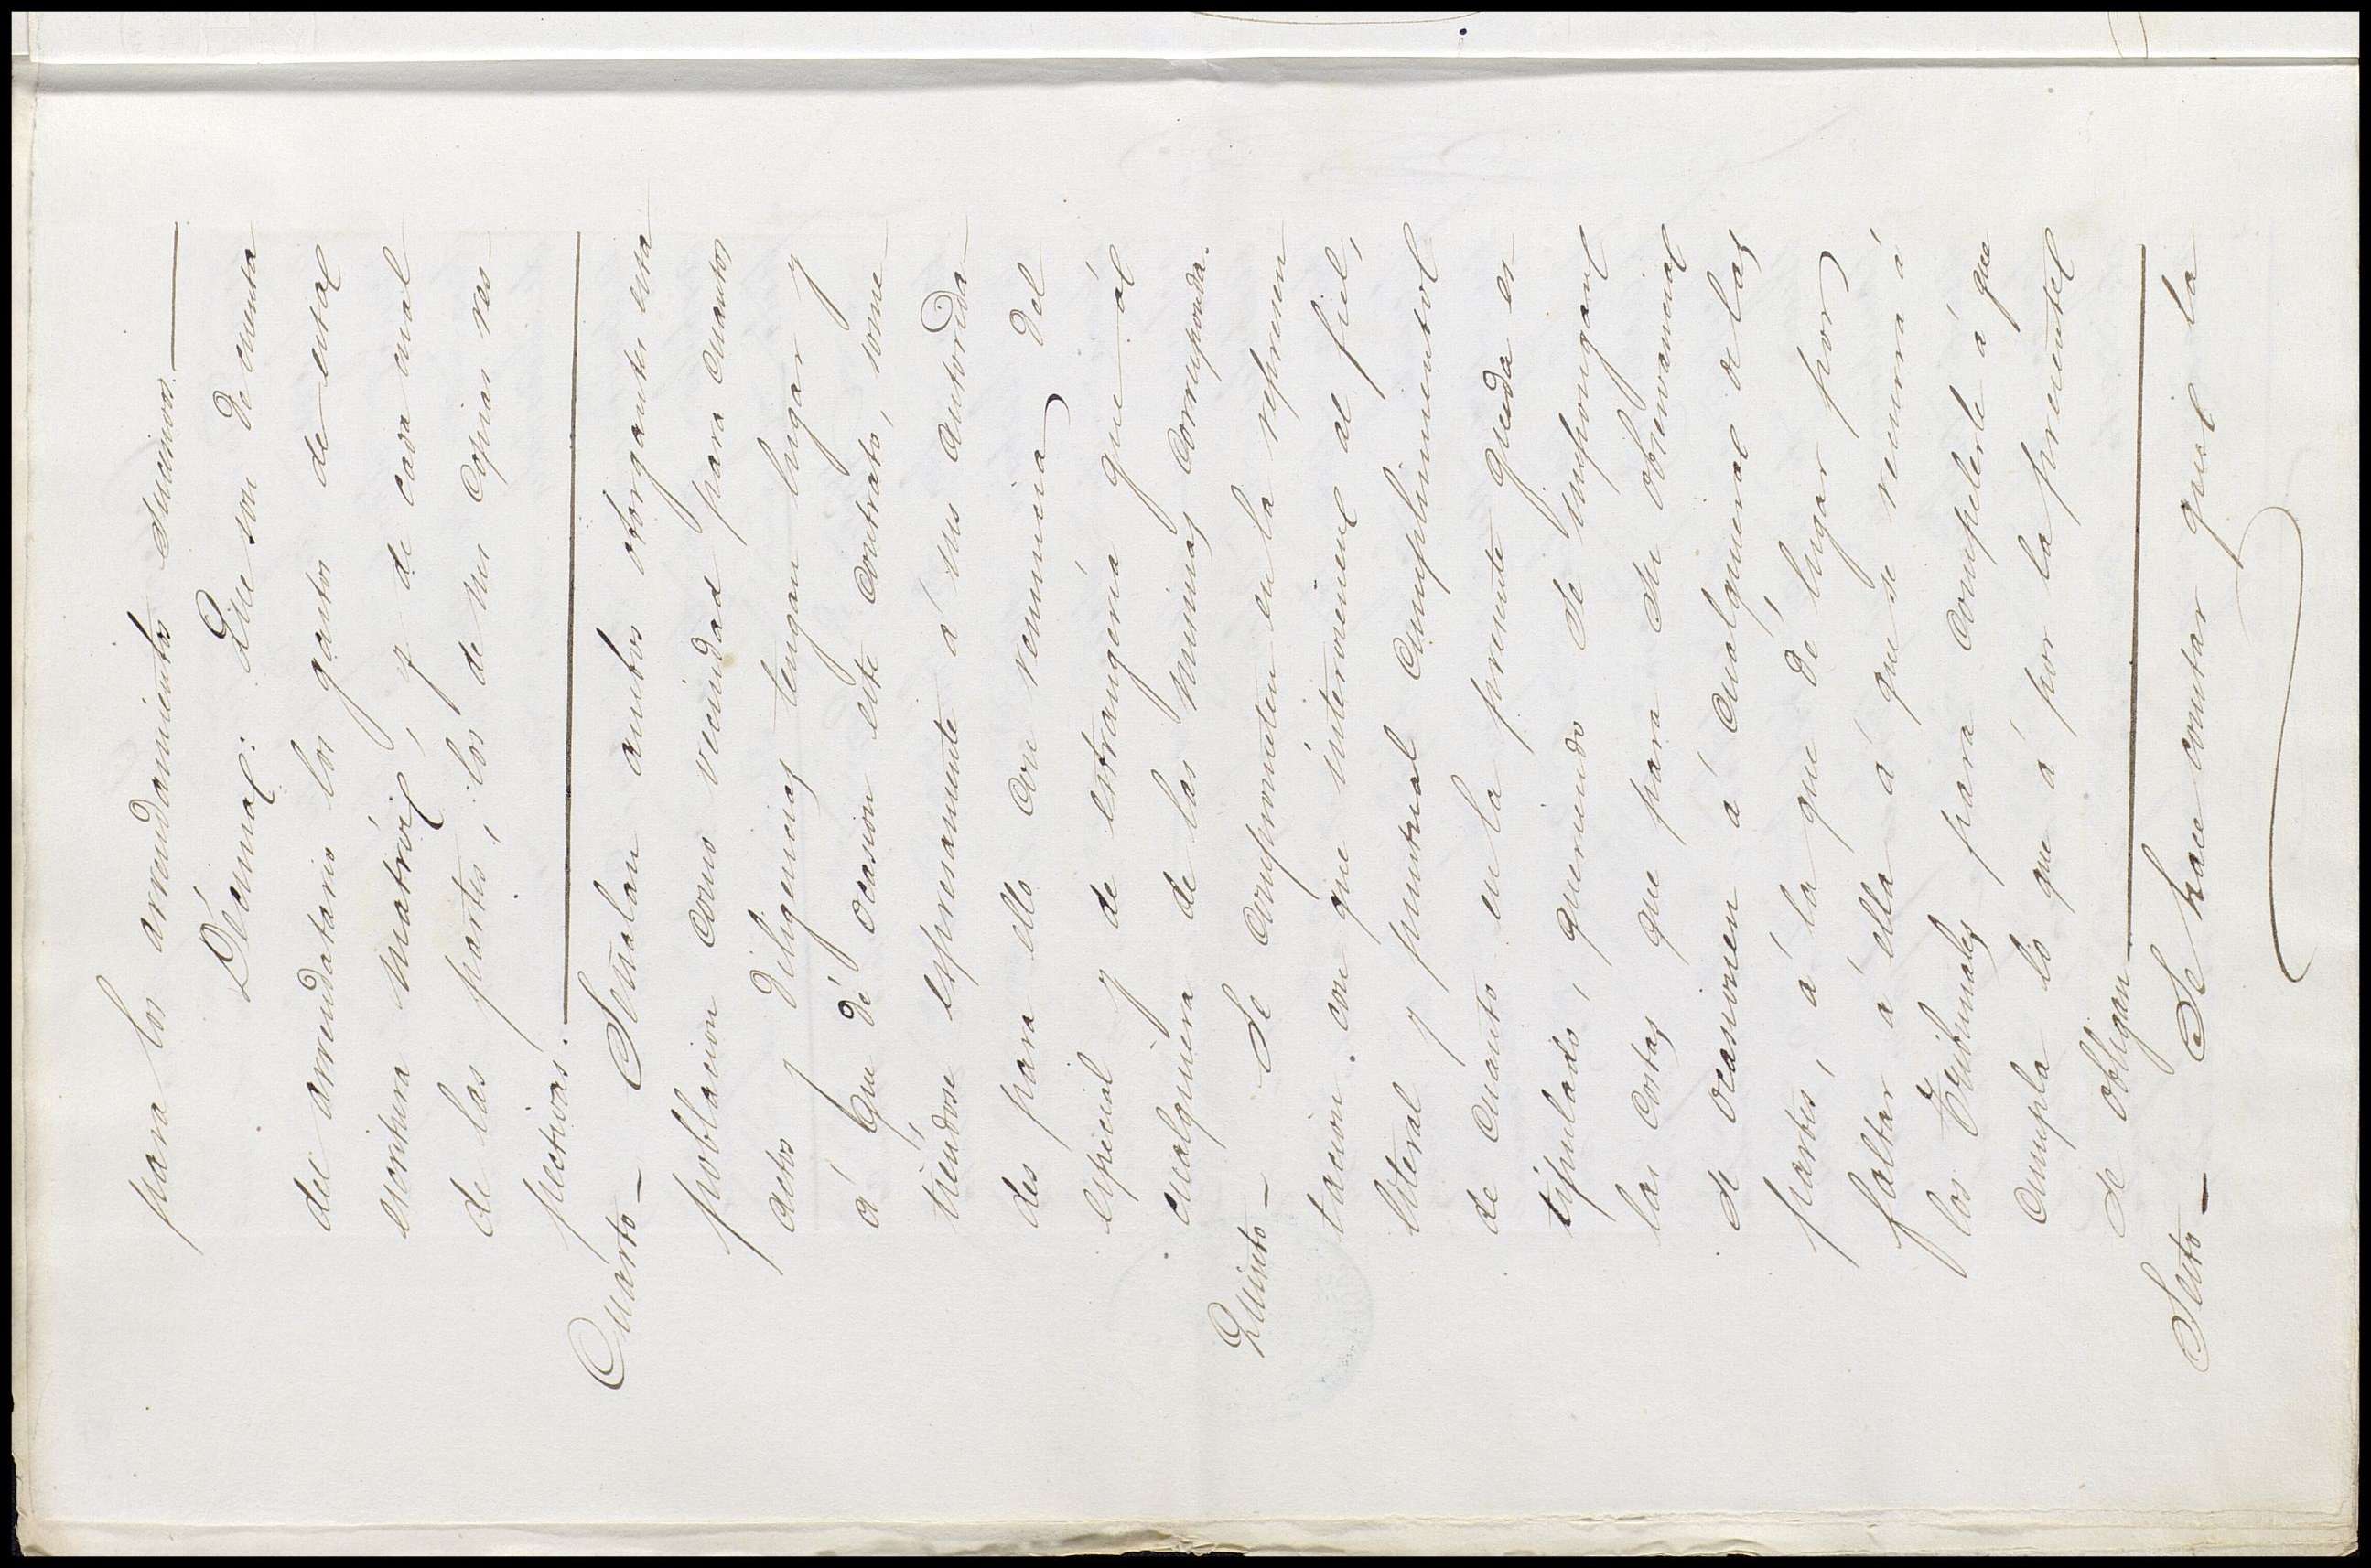 para los arrendamientos sucesivos.
Décima: Que son de cuenta
del arrendatario los gastos de esta
escritura matriz, y de cada cual
de las partes, los de sus copias res-
pectivas.
Cuarto— Señalan ambos otorgantes esta
poblacion como vecindad para cuantos
actos y diligencias tengan lugar y
á que dé ocasion este contrato, some-
tiéndose espresamente á sus autorida-
des para ello con renuncia del
especial y de estrangeria que al
cualquiera de las mismas corresponda.
Quinto— Se comprometen en la represen
tacion con que intervienen al fiel,
literal y puntual cumplimiento
de cuanto en la presente queda es
tipulado, queriendo se impongan
las costas que para su observancia
se ocasionen á cualquiera de las
partes, á la que dé lugar por
faltar á ella á que se recurra á
los Tribunales para compelerle á que
cumpla lo que á por la presente
se obligan—
Sesto— Se hace constar que la